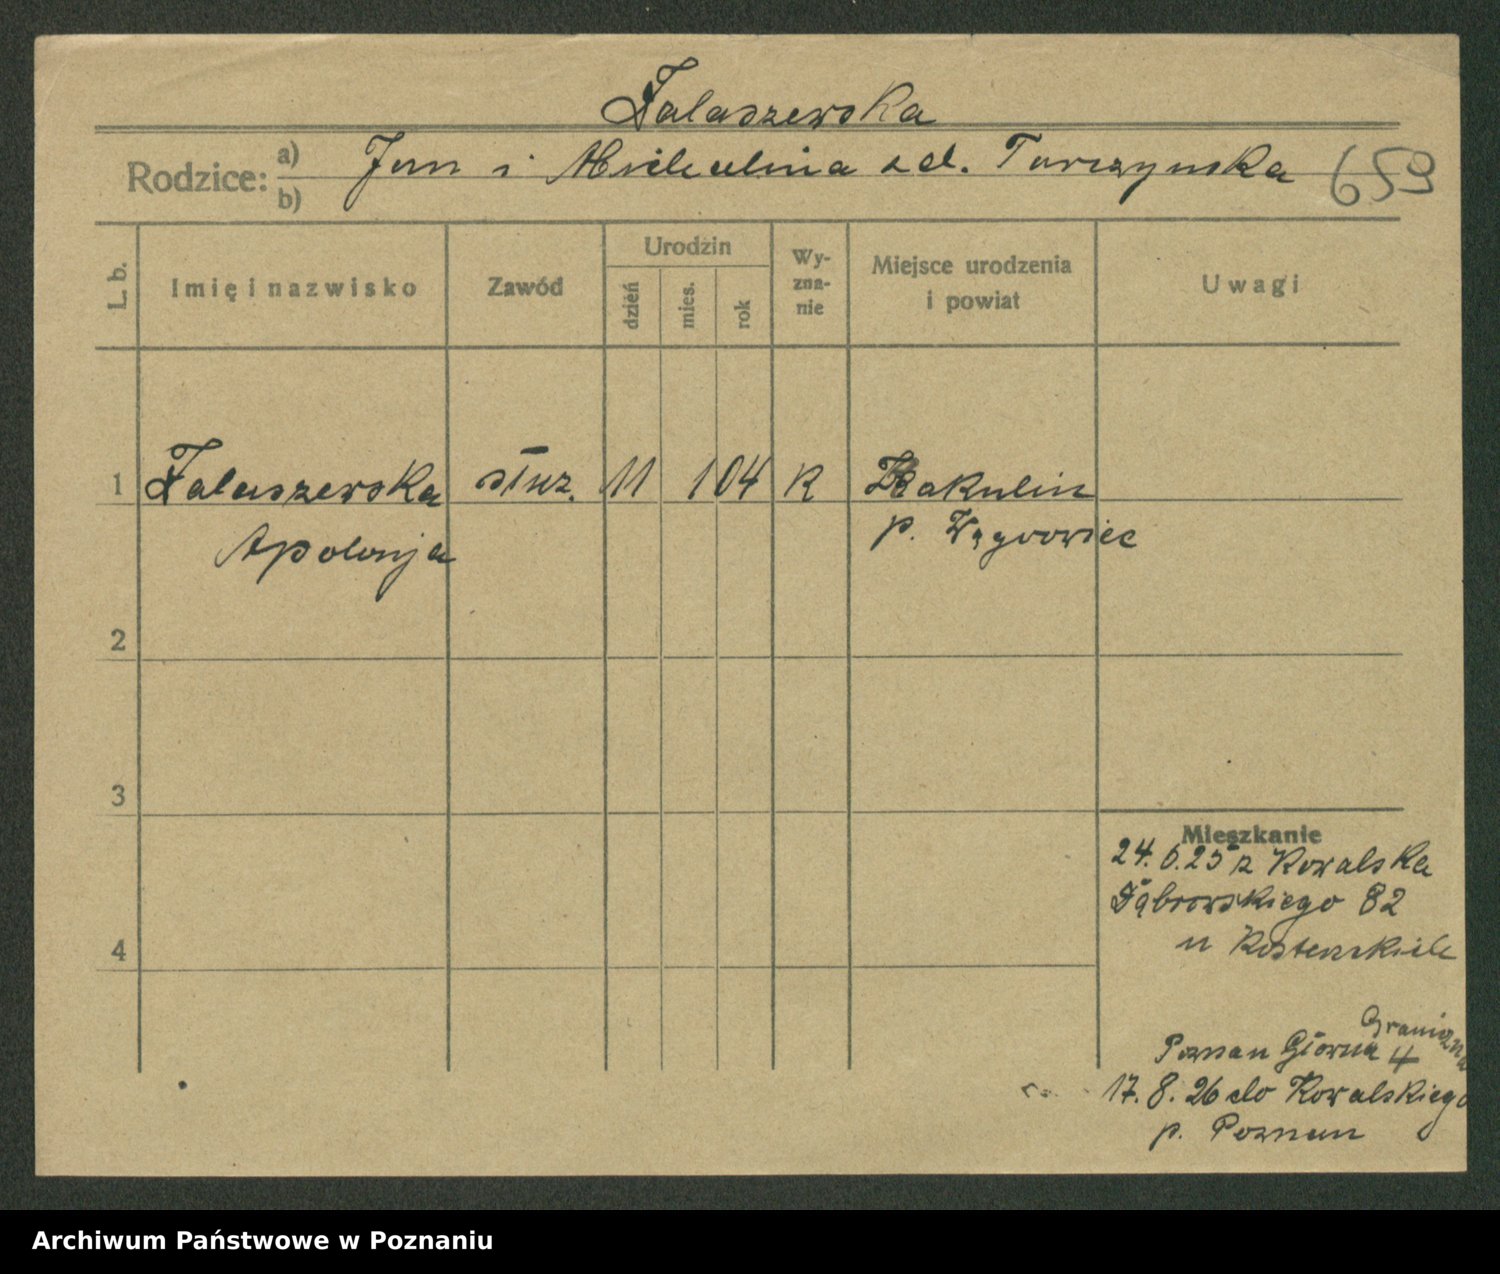 Falaszewska
Rodzice: a) b) Jan i Michalina z d. Turczynska 659
L. b. Imię i nazwisko Zawód Urodzin dzień mies. rok Wy-zna-nie Miejsce urodzenia i powiat Uwagi
1 Falaszewska służ. 11 1 04 K Bakulin
Apolonja p. Wągrowiec
2
3
Mieszkanie
24. 6. 25 z Kowalska
Dąbrowskiego 82
4
u Kosterskich
Graniczna
Poznan Głowna 4
17. 8. 26 do Kowalskiego
p. Poznan
Archiwum Państwowe w Poznaniu